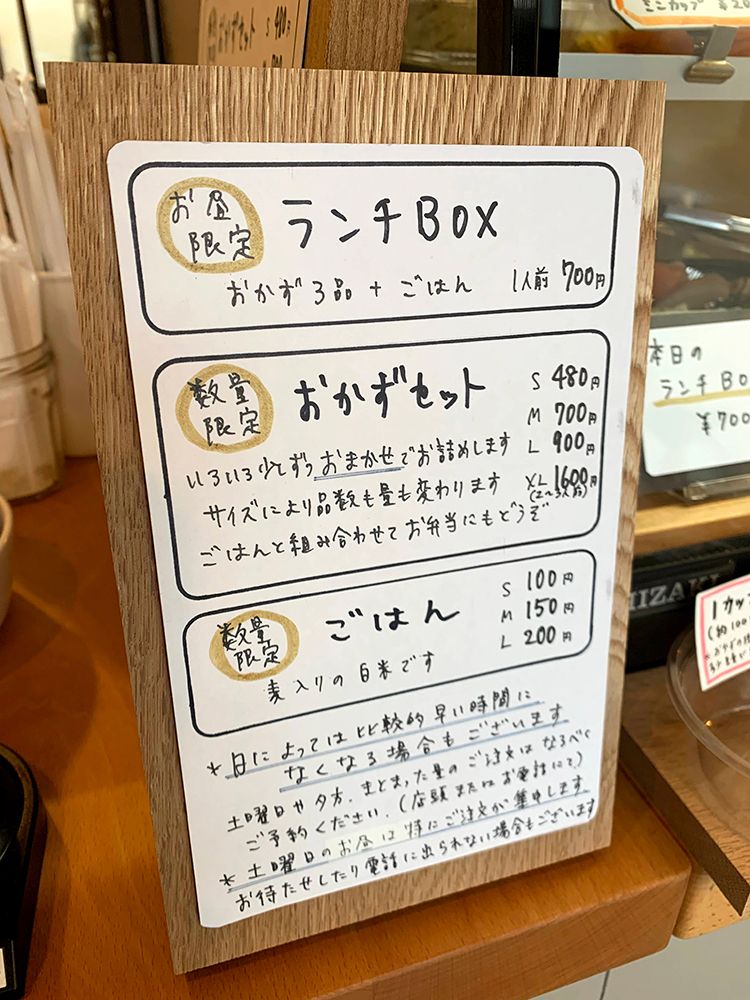 おかずセット S 480
ミニカップ
お昼限定 ランチBOX
おかず3品 + ごはん 1人前 700円
数量限定 おかずセット
S 480円
M 700円
L 900円
XL 1600円
(2〜3人前)
いろいろ少しずつおまかせでお詰めします
サイズにより品数も量も変わります
ごはんと組み合わせてお弁当にもどうぞ
数量限定 ごはん
S 100円
M 150円
L 200円
麦入りの白米です
*日によっては比較的早い時間に
なくなる場合もございます
土曜日や夕方、まとまった量のご注文はなるべく
ご予約ください。(店頭またはお電話にて)
*土曜日のお昼は特にご注文が集中します
お待たせしたり電話に出られない場合もございます
本日の
ランチBO
¥700
HIZAKI
1カップ
(約100